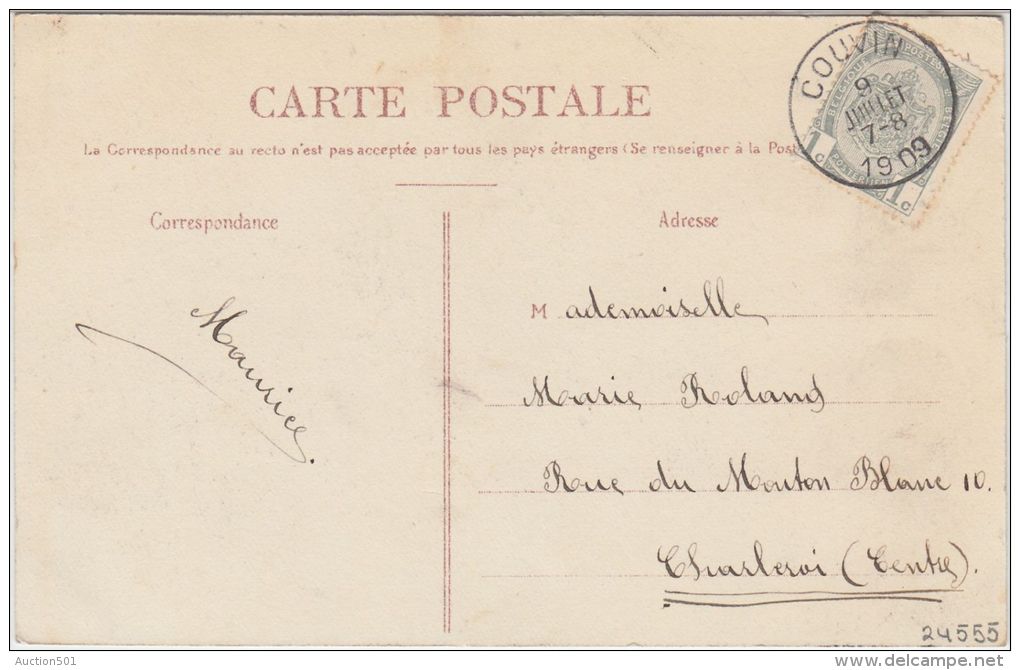 COUVIN
9
JUILLET
7-8
1909
BELGIQUE POSTES
1 c
1 c
CARTE POSTALE
La Correspondance au recto n'est pas acceptée par tous les pays étrangers (Se renseigner à la Post
Correspondance
Adresse
Maurice.
Mademoiselle
Marie Roland
Rue du Mouton Blanc 10.
Charleroi (Centre).
24555
Auction501
http://www.delcampe.net